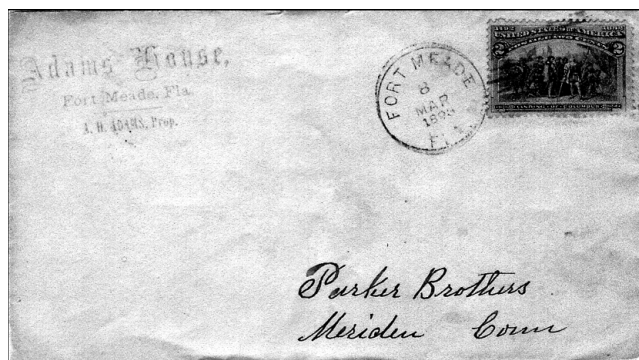 Adams House,
Fort Meade, Fla.
A. H. ADAMS, Prop.
FORT MEADE
8
MAR
FLA
1492 1892
UNITED STATES OF AMERICA
2 2
LANDING OF COLUMBUS
Parker Brothers
Meriden Conn